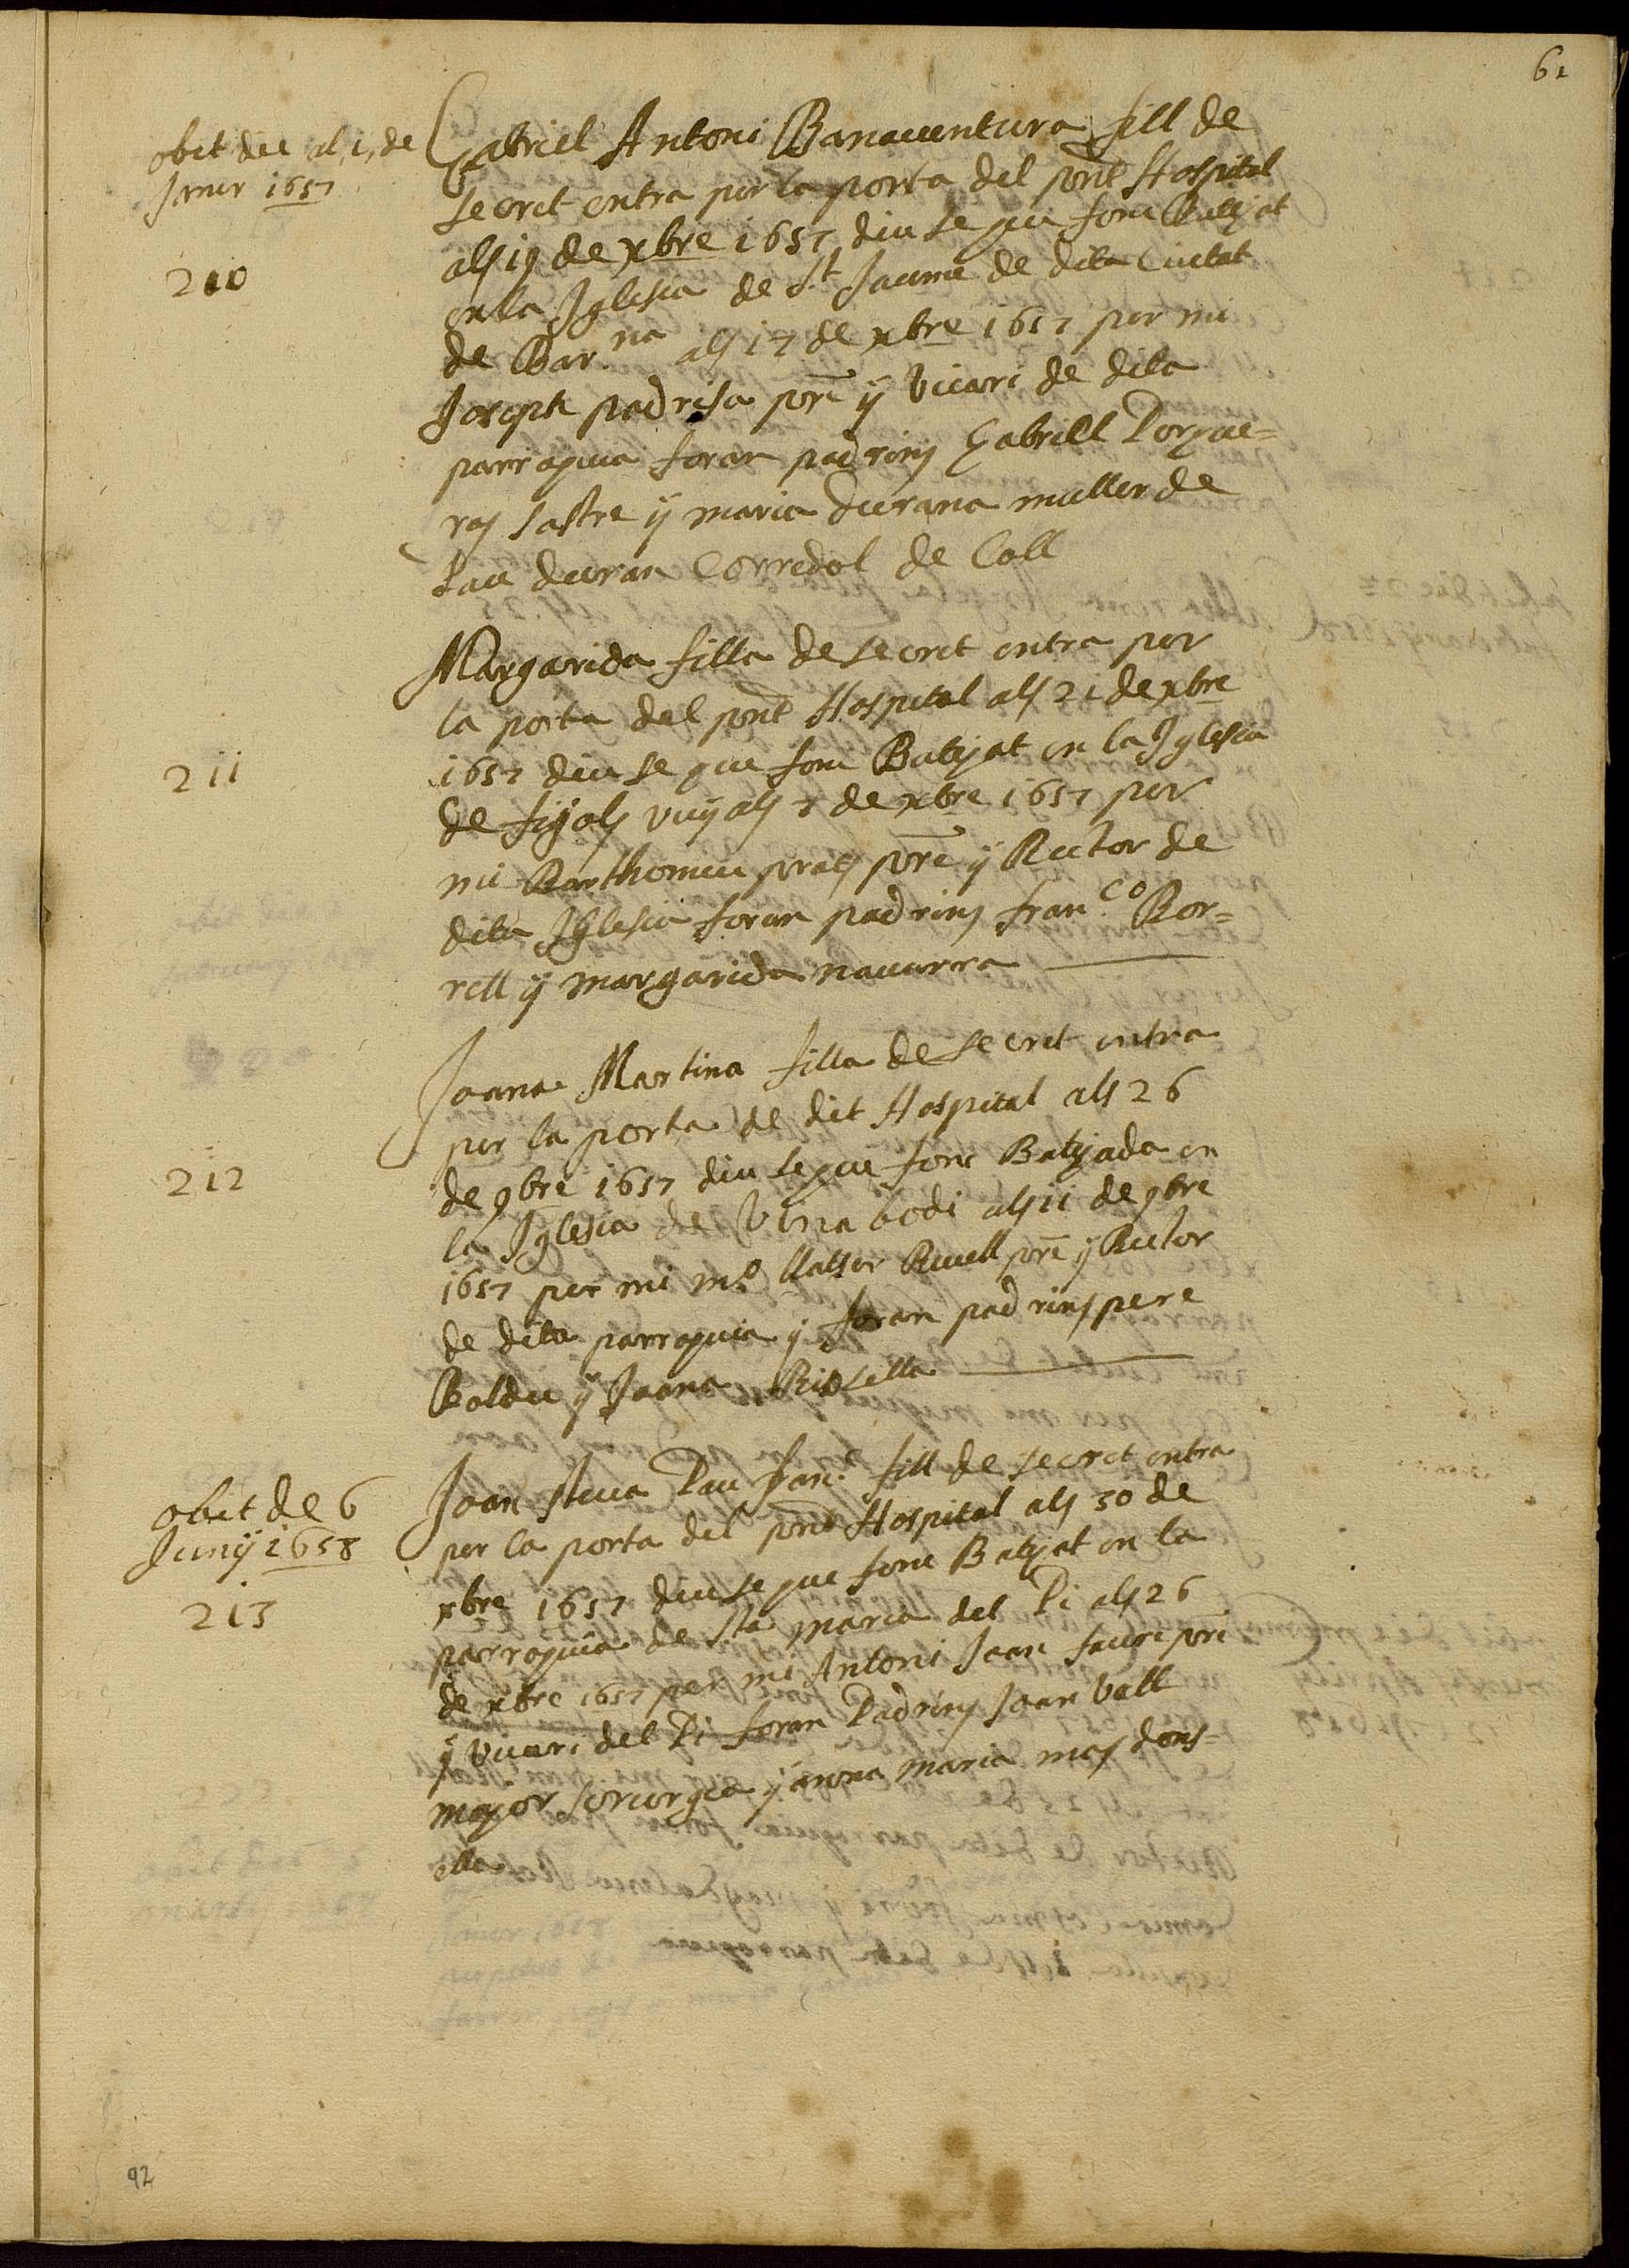 61
obit die als 1 de
Janer 1657
210
Gabriel Antoni Banauentura fill de
secret entra per la porta del pnt Hospital
als 19 de xbre 1657 diu se que fonc Batejat
en la Iglesia de St Jaume de dita Ciutat
de Barna als 17 de xbre 1657 per mi
Joseph padrisa pre y Vicari de dita
parroquia foran padrins Gabriell Porque=
ras sastre y maria durana muller de
Pau duran Corredol de Coll
211
Margarida filla de secret entra per
la porta del pnt Hospital als 21 de xbre
1657 diu se que fonc Batejat en la Iglesia
de figols vuy als 8 de xbre 1657 per
mi Barthomeu prats pre y Rector de
dita Iglesia foran padrins franco Bor=
rell y margarida nauarra
212
Joana Martina filla de secret entra
per la porta de dit Hospital als 26
de 9bre 1657 diu se que fonc Batejada en
la Iglesia de Vinabodi als 11 de 9bre
1657 per mi mo pre y Rector
de dita parroquia y foran padrins pere
Boldu y Joana
obit de 6
Juny 1658
213
Joan steua Pau franc fill de secret entra
per la porta del pnt Hospital als 30 de
xbre 1657 diu se que fonc Batejat en la
parroquia de Sta maria del Pi als 26
de xbre 1657 per mi Antoni Joan faure pre
y Vicari del Pi foran Padrins Joan Vall
major sirurgia y anna maria mas dons=
ella
92